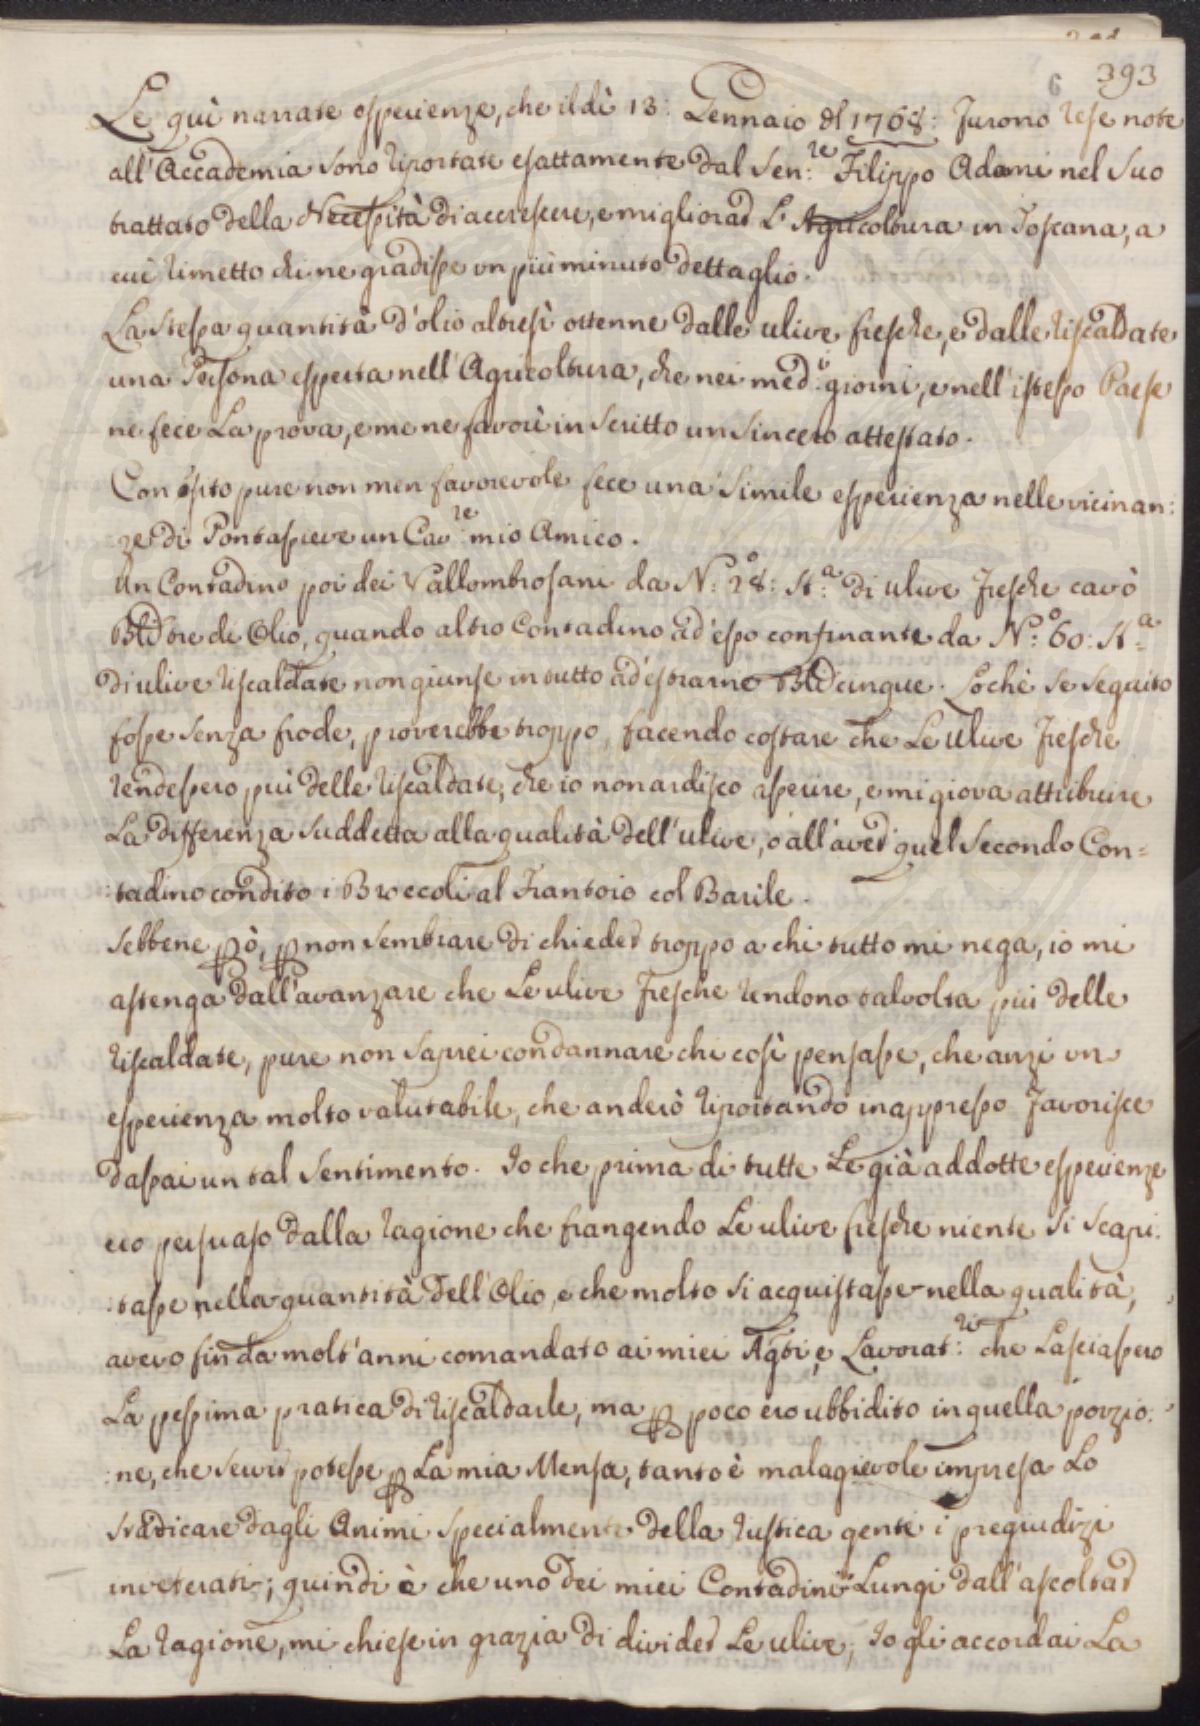 393
6
Le quì narrate esperienze, che il dì 13: Gennaio del 1768: furono rese note
all'Accademia sono riportate esattamente dal Sen:re Filippo Adami nel suo
trattato della Necessità di accrescere, e migliorar l'Agricoltura in Toscana, a
cui rimetto chi ne gradisse un più minuto dettaglio.
La stessa quantità d'olio altresì ottenne dalle ulive fresche, e dalle riscaldate
una Persona esperta nell'Agricoltura, che nei med:i giorni, e nell'istesso Paese
ne fece la prova, e me ne favorì in scritto un sincero attestato.
Con esito pure non men favorevole fece una simile esperienza nelle vicinan:
ze di Pontassieve un Cav:re mio Amico.
Un Contadino poi dei Vallombrosani da N:o 28: St:a di ulive fresche cavò
Bli tre di Olio, quando altro Contadino ad esso confinante da N:o 60: St:a
di ulive riscaldate non giunse in tutto ad estrarne Bli cinque. Lochè se seguito
fosse senza frode, proverebbe troppo, facendo costare che le ulive fresche
rendessero più delle riscaldate, che io non ardisco asserire, e mi giova attribuire
la differenza suddetta alla qualità dell'ulive, o all'aver quel secondo Con=
:tadino condito i Broccoli al Frantoio col Barile.
Sebbene però, per non sembrare di chieder troppo a chi tutto mi nega, io mi
astenga dall'avanzare che le ulive fresche rendono talvolta più delle
riscaldate, pure non saprei condannare chi così pensasse, che anzi un
esperienza molto valutabile, che anderò riportando in appresso favorisce
dassai un tal sentimento. Io che prima di tutte le già addotte esperienze
ero persuaso dalla ragione che frangendo le ulive fresche niente si scapi:
:tasse nella quantità dell'Olio, e che molto si acquistasse nella qualità,
avevo fin da molt'anni comandato ai miei Agti, e Lavorat:ri che lasciassero
la pessima pratica di riscaldarle, ma per poco ero ubbidito in quella porzio:
:ne, che servir potesse per la mia Mensa, tanto è malagievole impresa lo
sradicare dagli Animi specialmente della rustica gente i pregiudizi
inveterati; quindi è che uno dei miei Contadini lungi dall'ascoltar
la ragione, mi chiese in grazia di divider le ulive, Io gli accordai la